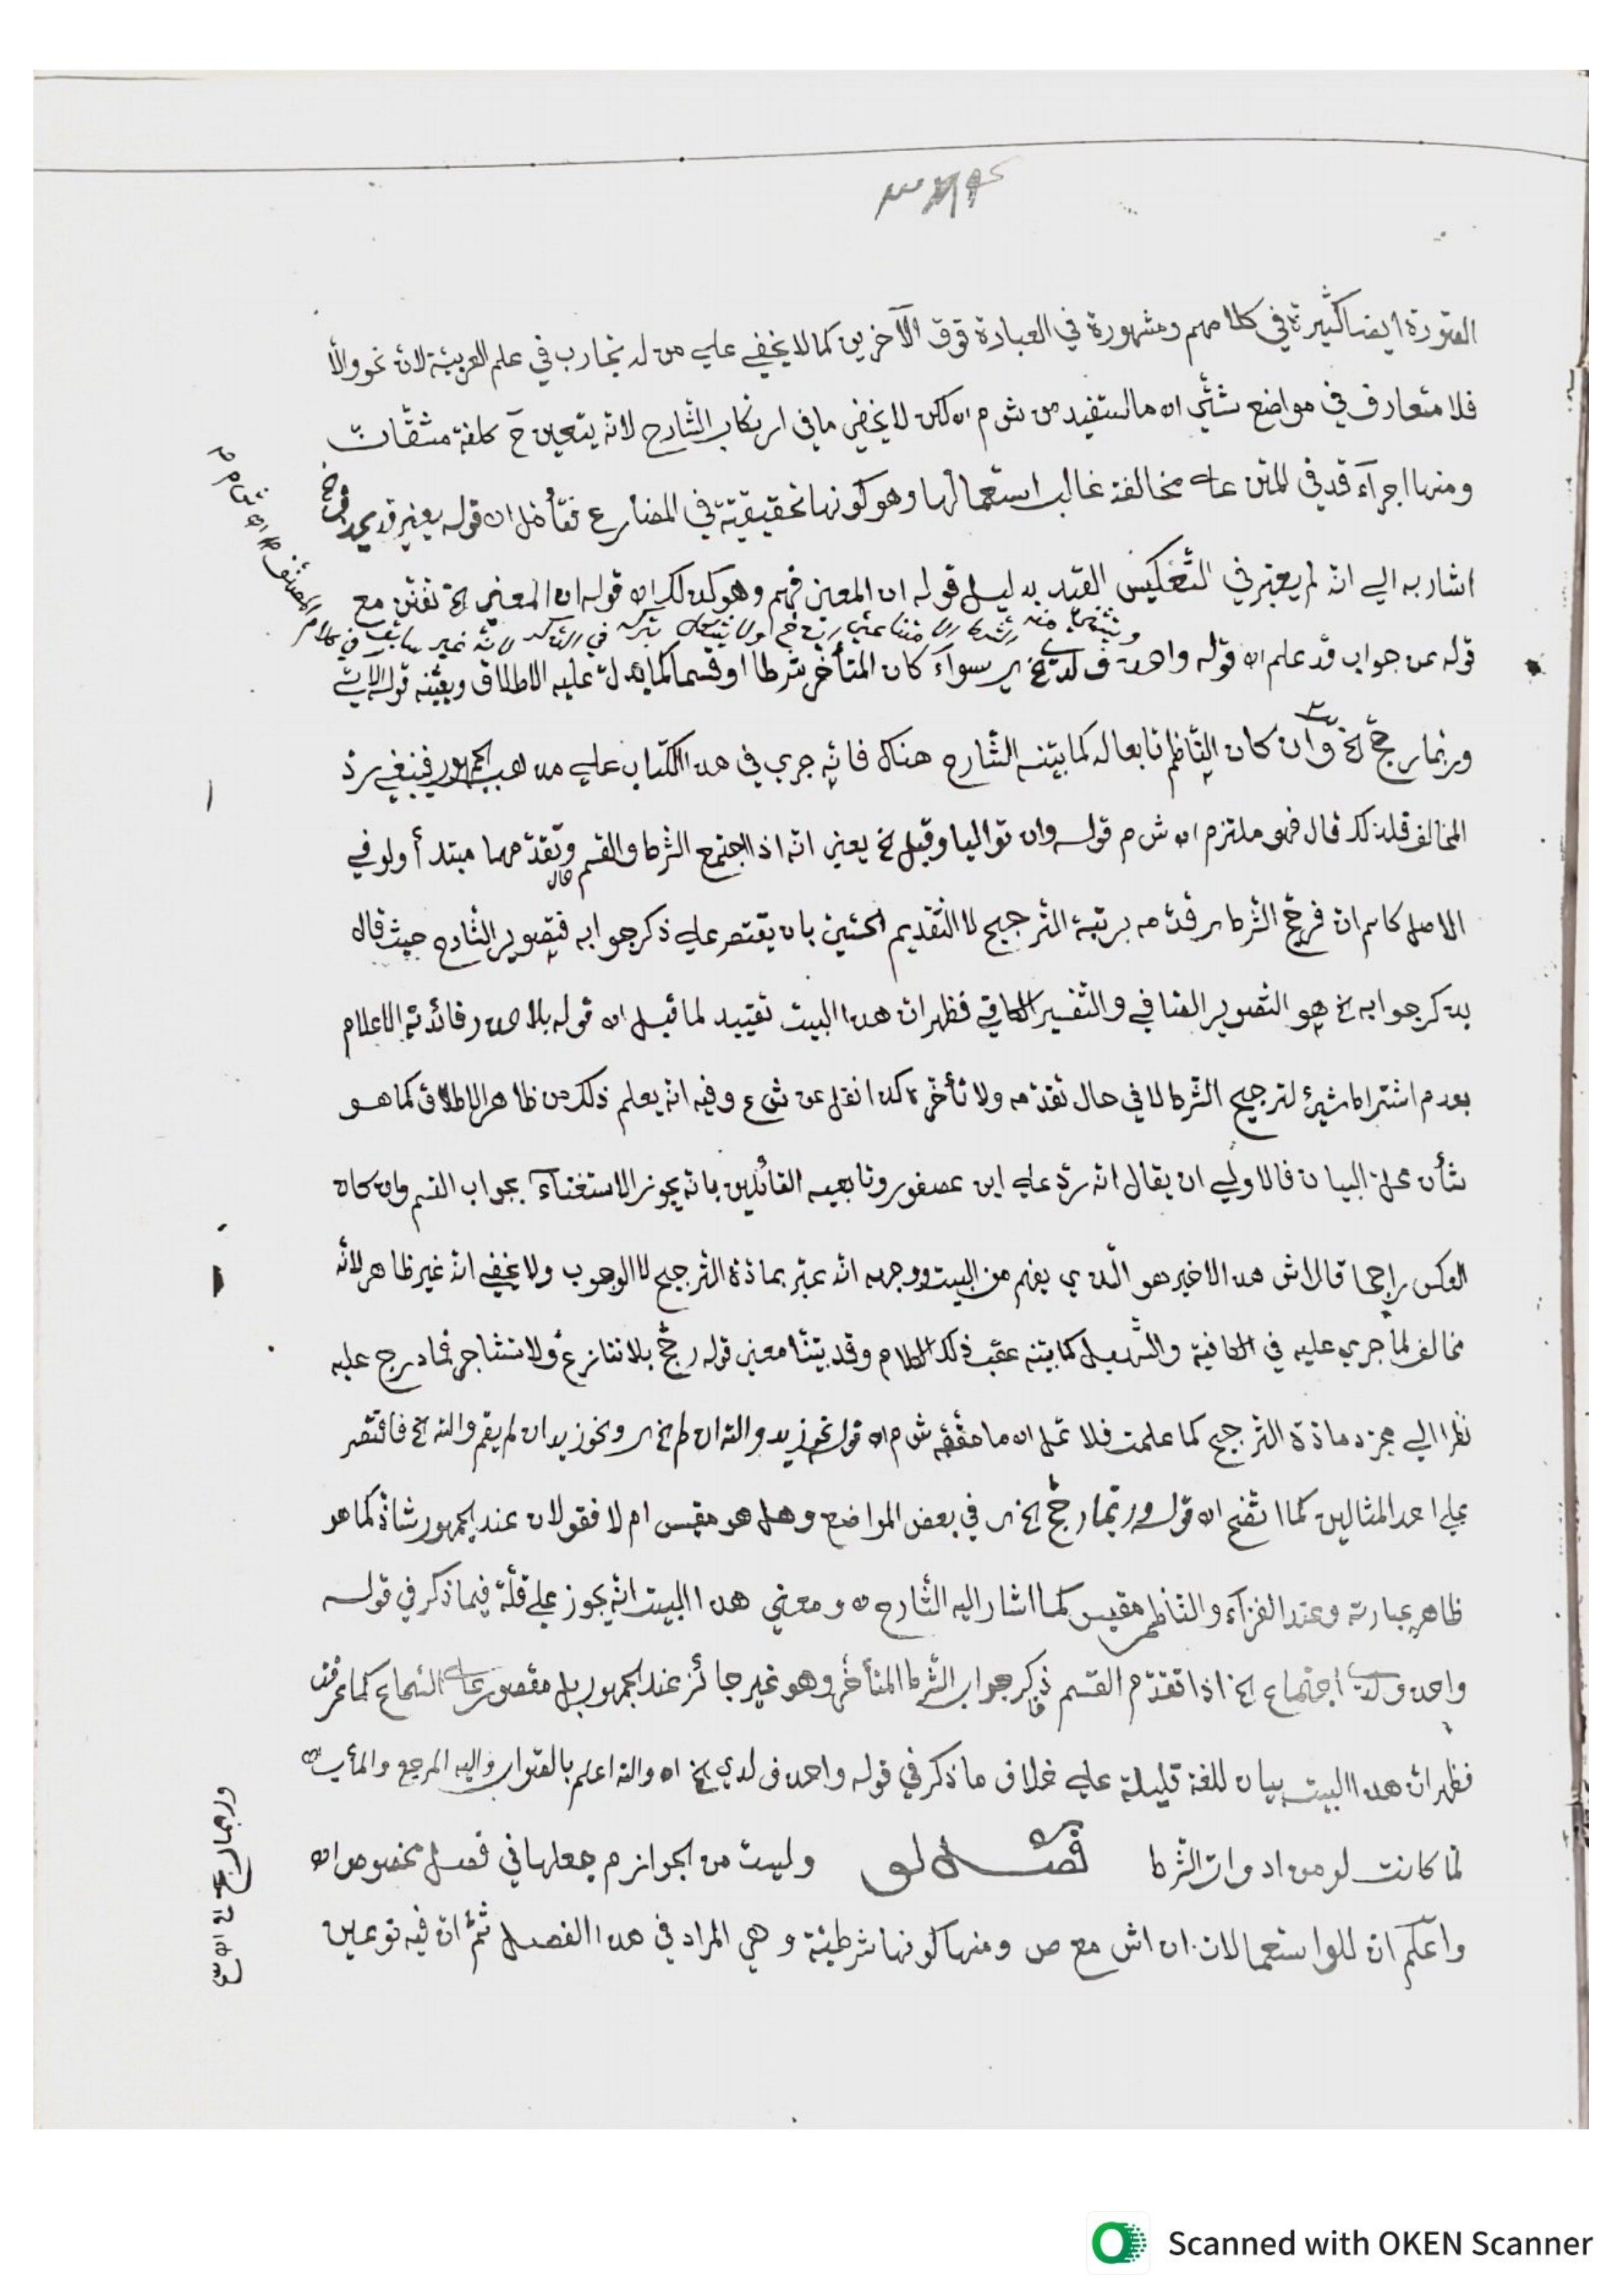 الصورة ايضا كثيرة في كلامهم ومشهورة في العبادة فوق الآخرين كما لا يخفى علي من له تجارب في علم العربية لان نحو والأ
فلا متعارف في مواضع شتّي اه ما استفيد من ش م اه لكن لا يخفي ما في ارتكاب الشارح لانه يتعين ح كلفة مشقات
ومنها اجراء قد في المتن علي مخالفة غالب استعمالها وهو كونها تحقيقية في المضارع فتأمل اه قوله يعني قد
اشار به الي انه لم يعتبر في التعكيس القيد بدليل قوله ان المعنى فهم وهو كذلك اه قوله ان المعني الخ تفنن مع
قوله عن جواب قد علم اه قوله واحذف لدي الخ اي سواء كان المتأخر شرطا او قسما كما يدل عليه الاطلاق ويعينه قوله الاتي
وربما رجح الخ وان كان الناظم تابعا له كما بينه الشارح هناك فانه جري في هذا الكتاب علي مذهب الجمهور فينبغي رد
المخالف فلذلك قال فهو ملتزم اه ش م قوله وان تواليا وقبل الخ يعني انه اذا اجتمع الشرط والقسم وتقدمهما مبتدأ ولو في
الاصل كاسم ان فرجح الشرط اي قدمه برتبة الترجيح لا التقديم الحسّي بان يقتصر علي ذكر جوابه فتصوير الشارح حيث قال
بذكر جوابه الخ هو التصوير المنافي والتفسير الكافي فظهر ان هذا البيت تقييد لما قبله اه قوله بلا حذر فائدته الاعلام
بعدم اشتراط شيئ لترجيح الشرط لا في حال تقدمه ولا تأخره كذا نقل عن ش ع وفيه انه يعلم ذلك من ظاهر الاطلاق كما هو
شأن محل البيان فالاولي ان يقال انه رد علي ابن عصفور وتابعيه القائلين بانه يجوز الاستغناء بجواب القسم وان كان
العكس راجحا قال اش هذا الاخير هو الذي يفهم من البيت ووجهه انه عبّر بمادة الترجيح لا الوجوب ولا يخفي انه غير ظاهر لأنه
مخالف لما جري عليه في الكافية والتسهيل كما بينه عقب ذلك الكلام وقد بيّنا معني قوله رجح بلا تنازع ولا تشاجر فما درج عليه
نظرا الي مجرد مادة الترجيح كما علمت فلا تمل اه ما حققه ش م اه قوله نحو زيد والله ان لم الخ اي ونحو زيد ان لم يقم والله الخ فاقتصر
علي احد المثالين كما اتضح اه قوله وربما رجح الخ اي في بعض المواضع وهل هو مقيس ام لا فقولان عند الجمهور شاذ كما هو
ظاهر عبارته وعند الفراء والناظم مقيس كما اشار اليه الشارح اه ومعني هذا البيت انه يجوز علي قلة فيما ذكر في قوله
واحذف لدي اجتماع الخ اذا تقدم القسم ذكر جواب الشرط المتأخر وهو غير جائز عند الجمهور بل مقصور علي السماع كما عرفت
فظهر ان هذا البيت بيان للغة قليلة علي خلاف ما ذكر في قوله واحذف لدي الخ اه والله اعلم بالصواب واليه المرجع والمأب اه
لما كانت لو من ادوات الشرط فصل لو وليست من الجوازم جعلها في فصل مخصوص اه
واعلم ان للو استعمالات ان اش مع ص ومنها كونها شرطية وهي المراد في هذا الفصل ثم ان فيه نوعين
وربما رجح الخ
Scanned with OKEN Scanner